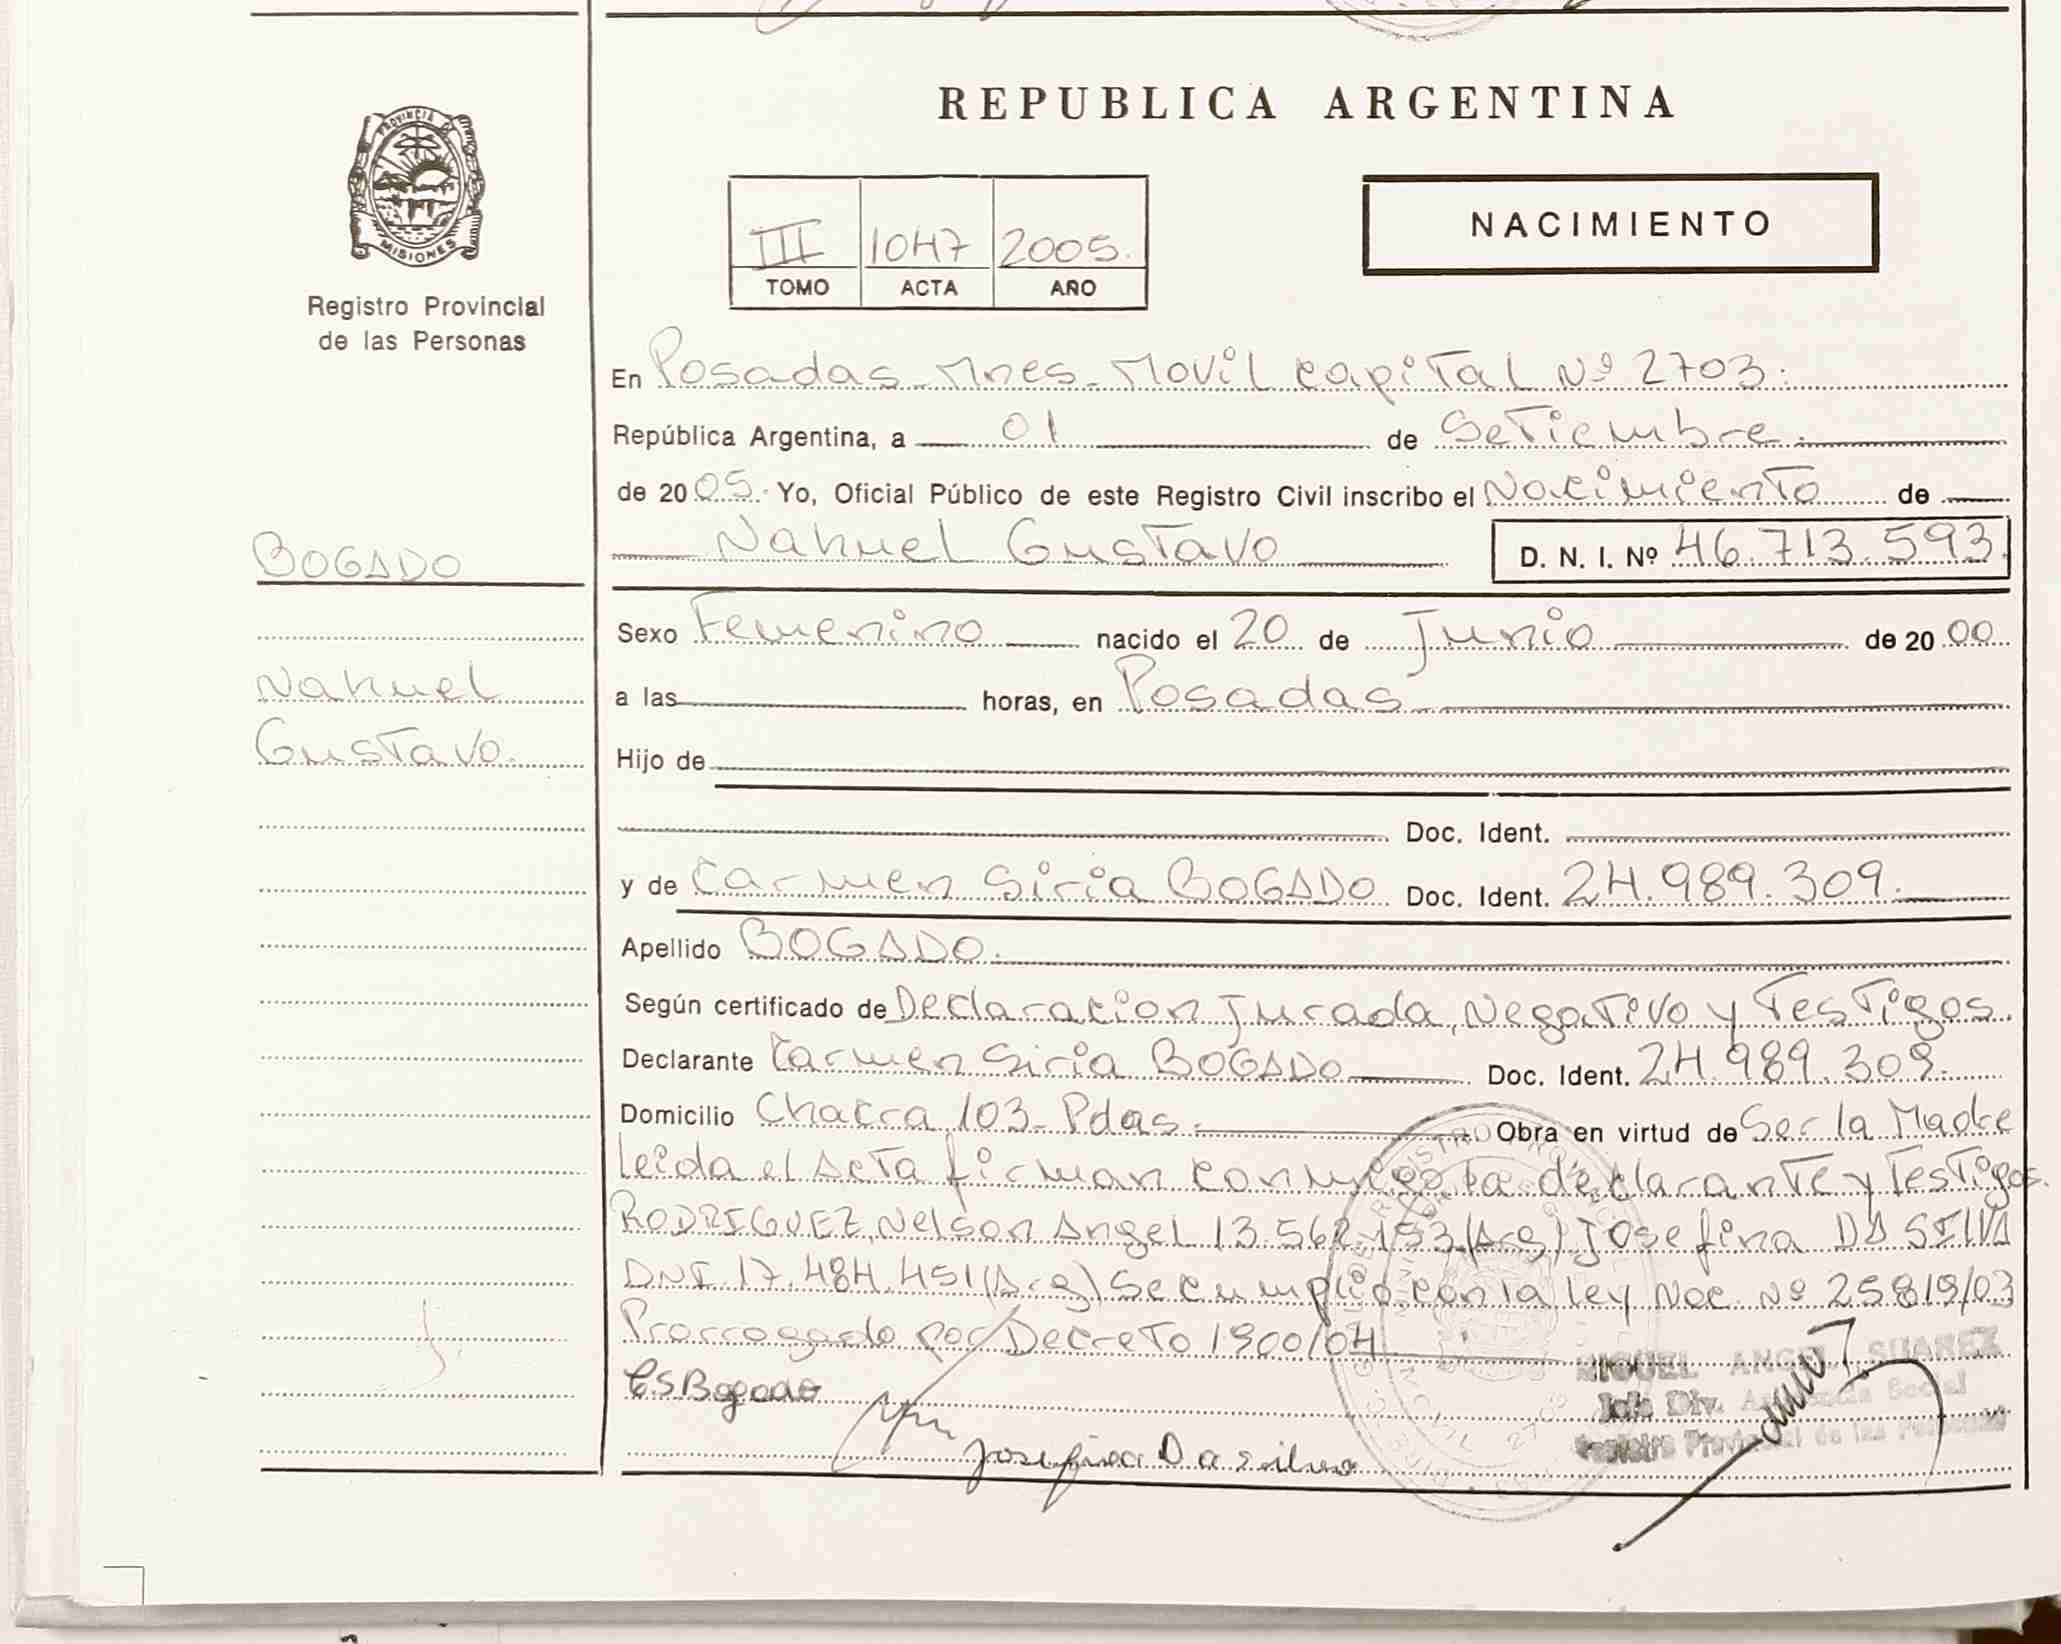 REPUBLICA ARGENTINA
PROVINCIA DE
MISIONES
Registro Provincial
de las Personas
NACIMIENTO
III 1047 2005.
TOMO ACTA AÑO
En Posadas Mnes. Movil Capital Nº 2703.
República Argentina, a 01 de Setiembre.
de 2005. Yo, Oficial Público de este Registro Civil inscribo el Nacimiento de
BOGADO
Nahuel Gustavo D. N. I. Nº 46.713.593.
Sexo Femenino nacido el 20 de Junio de 2000.
Nahuel
a las horas, en Posadas
Gustavo.
Hijo de
Doc. Ident.
y de Carmen Siria BOGADO Doc. Ident. 24.989.309.
Apellido BOGADO.
Según certificado de Declaracion Jurada, Negativo y Testigos.
Declarante Carmen Siria BOGADO Doc. Ident. 24.989.309.
Domicilio Chacra 103- Pdas. Obra en virtud de Ser la Madre
leida el Acta firman conmigo la declarante y Testigos.
RODRIGUEZ, Nelson Angel 13.562.153 (Arg) Josefina DA SILVA
DNI 17.484.451 (Arg) Se cumplio con la ley Nac. Nº 25819/03
Prorrogado por Decreto 1900/04
CSBogado
MIGUEL ANGEL SUAREZ
Jefe Div. Asistencia Social
Registro Provincial de las Personas
Josefina Da silva